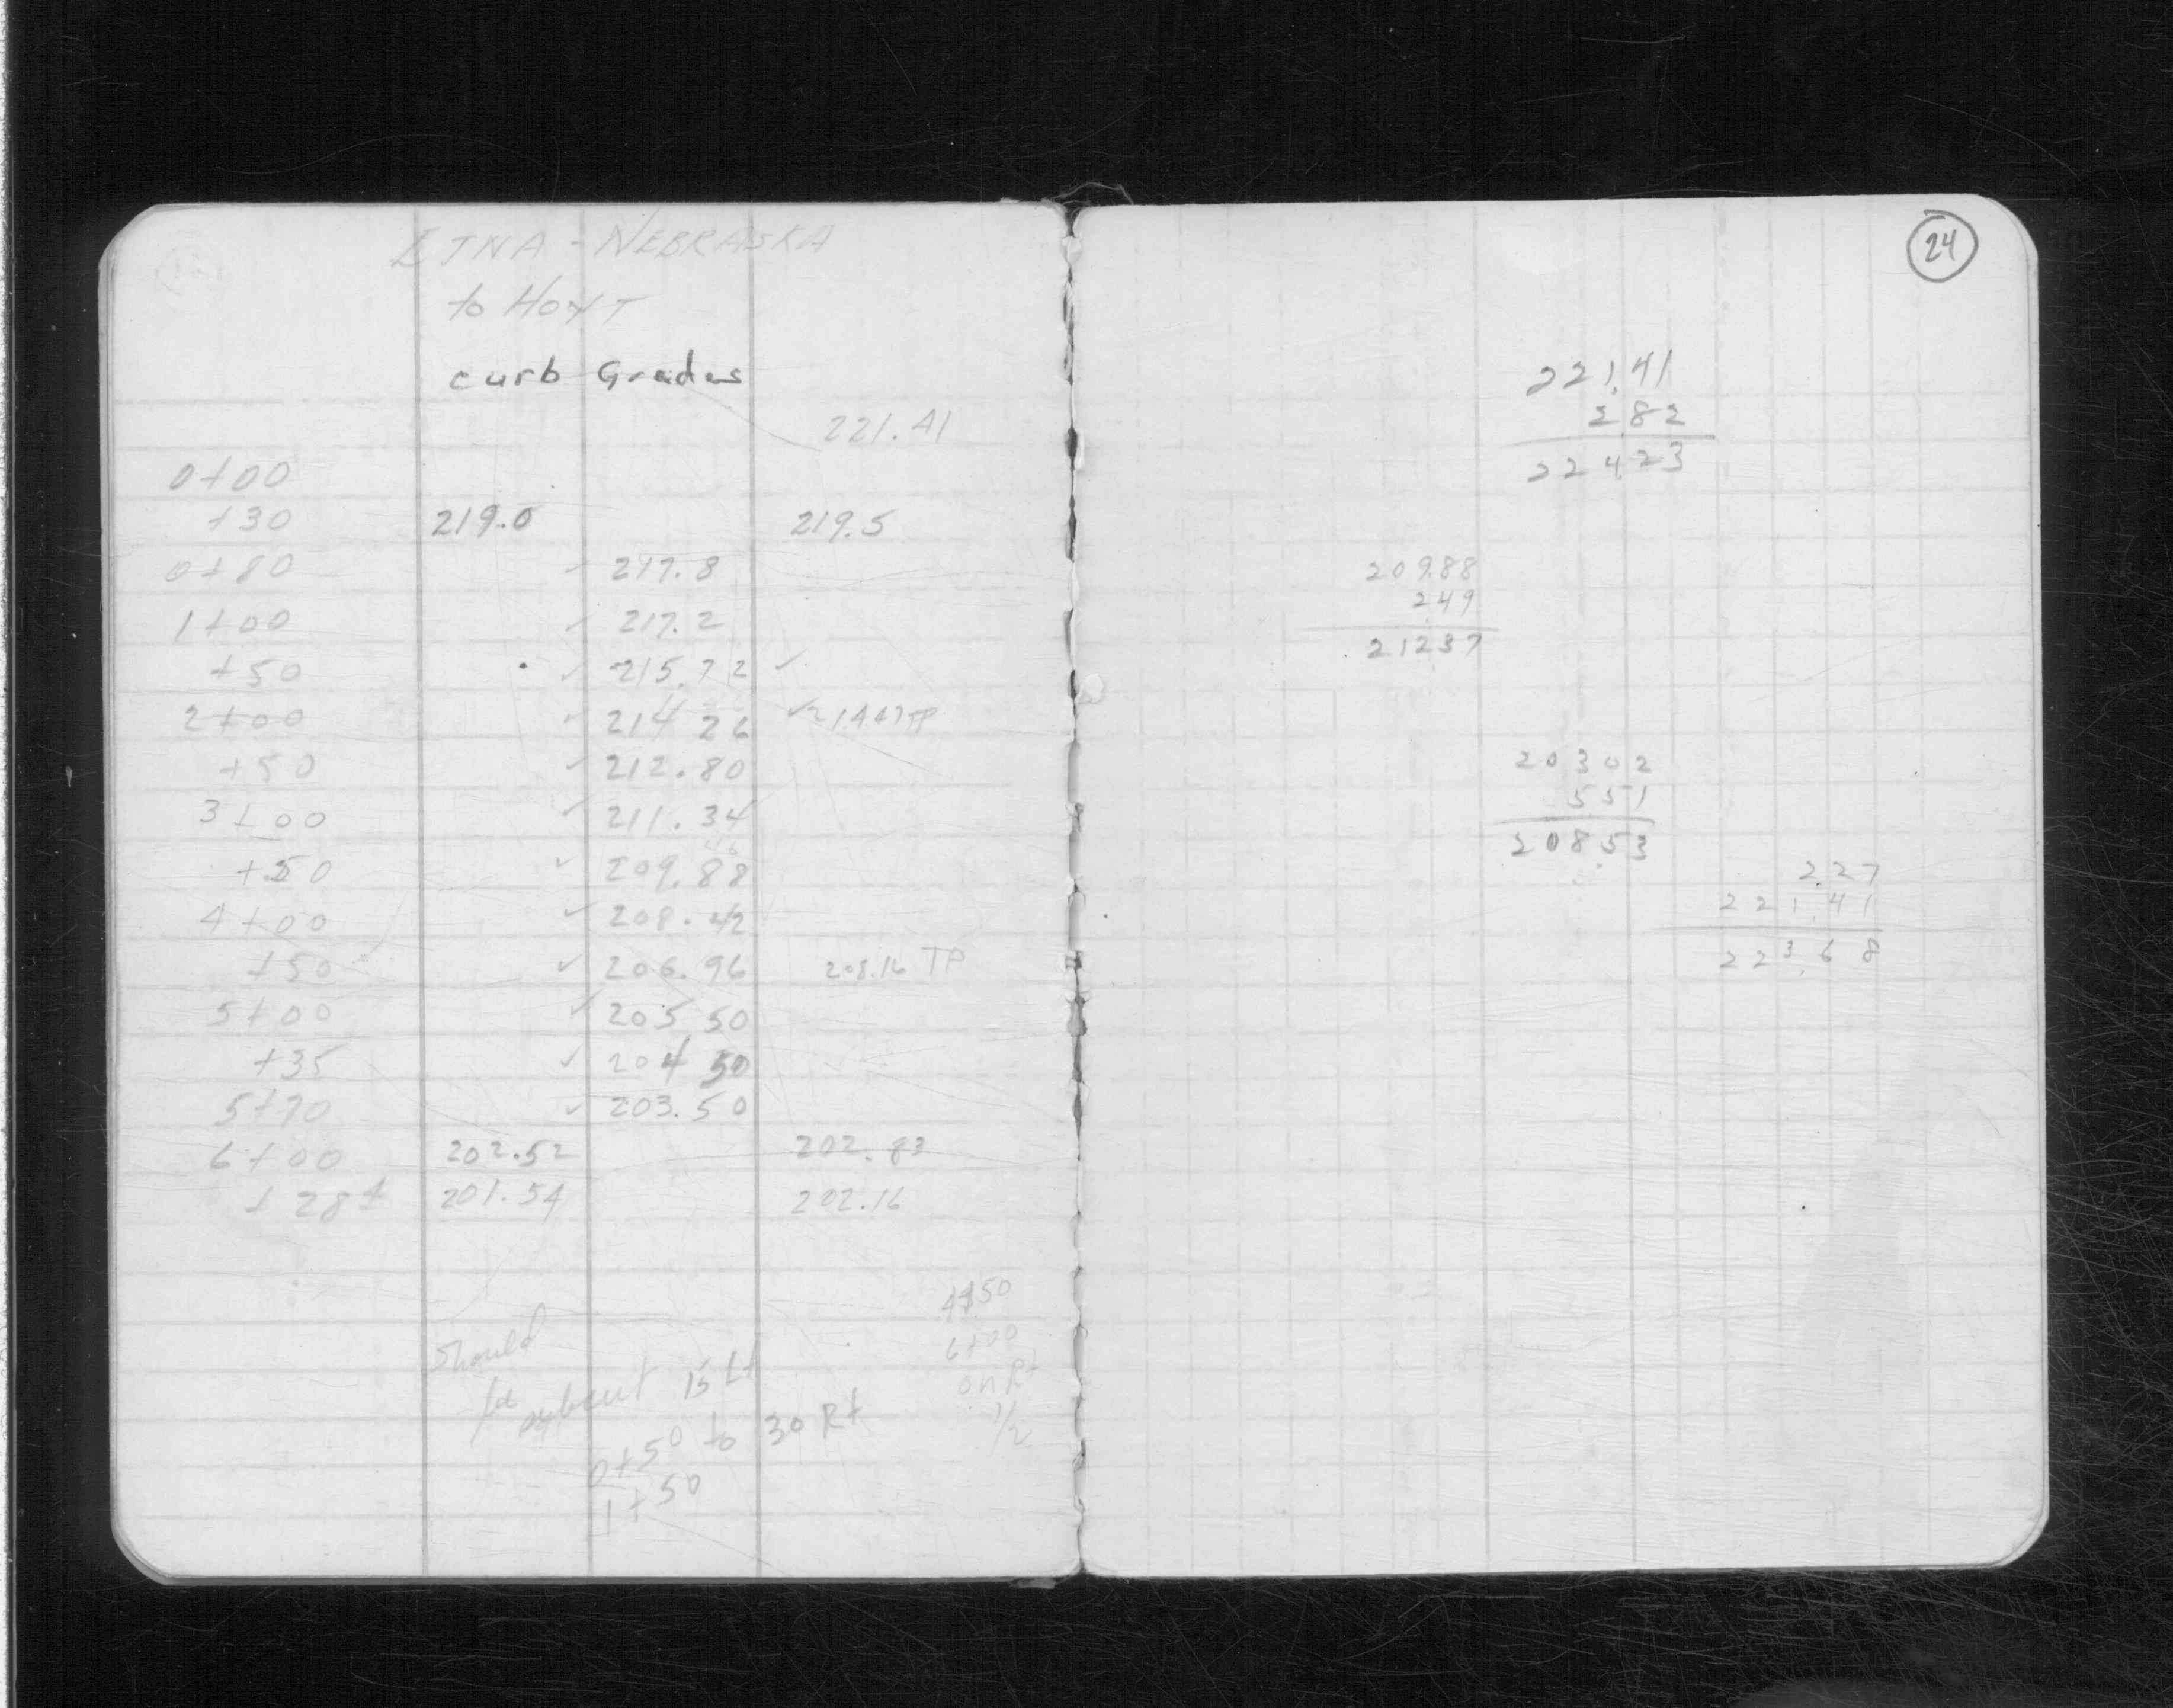 ETNA - NEBRASKA
to HOYT
curb Grades
221.41
0+00
+30 219.0 219.5
0+80 ✓ 217.8
1+00 ✓ 217.2
+50 ✓ 215.72 ✓
2+00 ✓ 214 26 ✓ TP
+50 ✓ 212.80
3+00 ✓ 211.34
+50 ✓ 209.88
4+00 ✓ 208.42
+50 ✓ 206.96 208.16 TP
5+00 ✓ 205 50
+35 ✓ 204 50
5+70 ✓ 203.50
6+00 202.52 202.83
+28± 201.54 202.16
4+50
6+00
on Rt
1/2
should
be 15 Lt
0+50 to 30 Rt
1+50
24
221.41
282
22423
209.88
249
21237
20302
551
20853
2.27
221.41
223.68